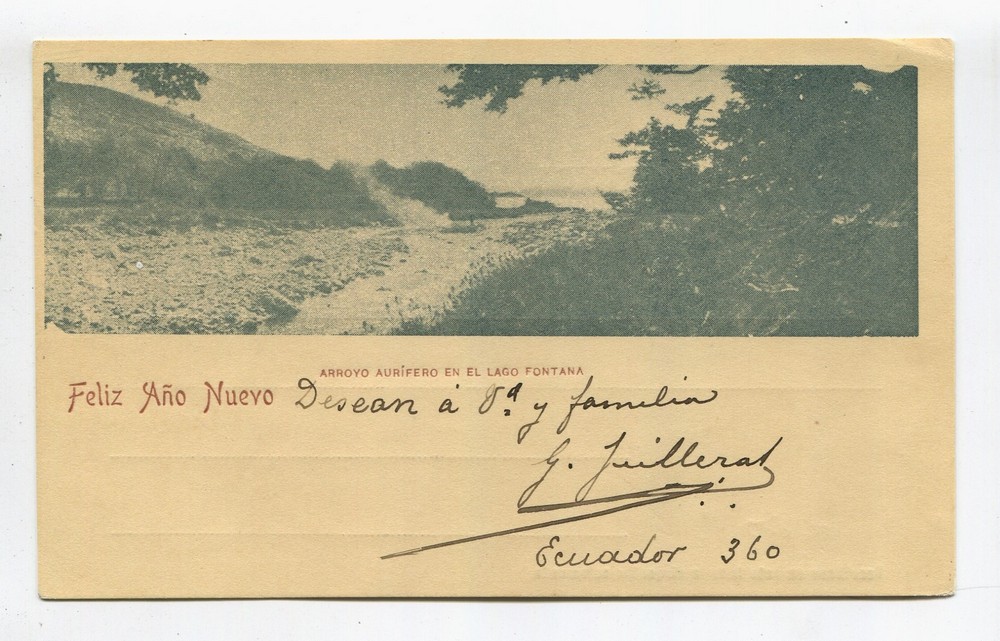 ARROYO AURÍFERO EN EL LAGO FONTANA
Feliz Año Nuevo Desean á Vd. y familia
G. Juillerat
Ecuador 360